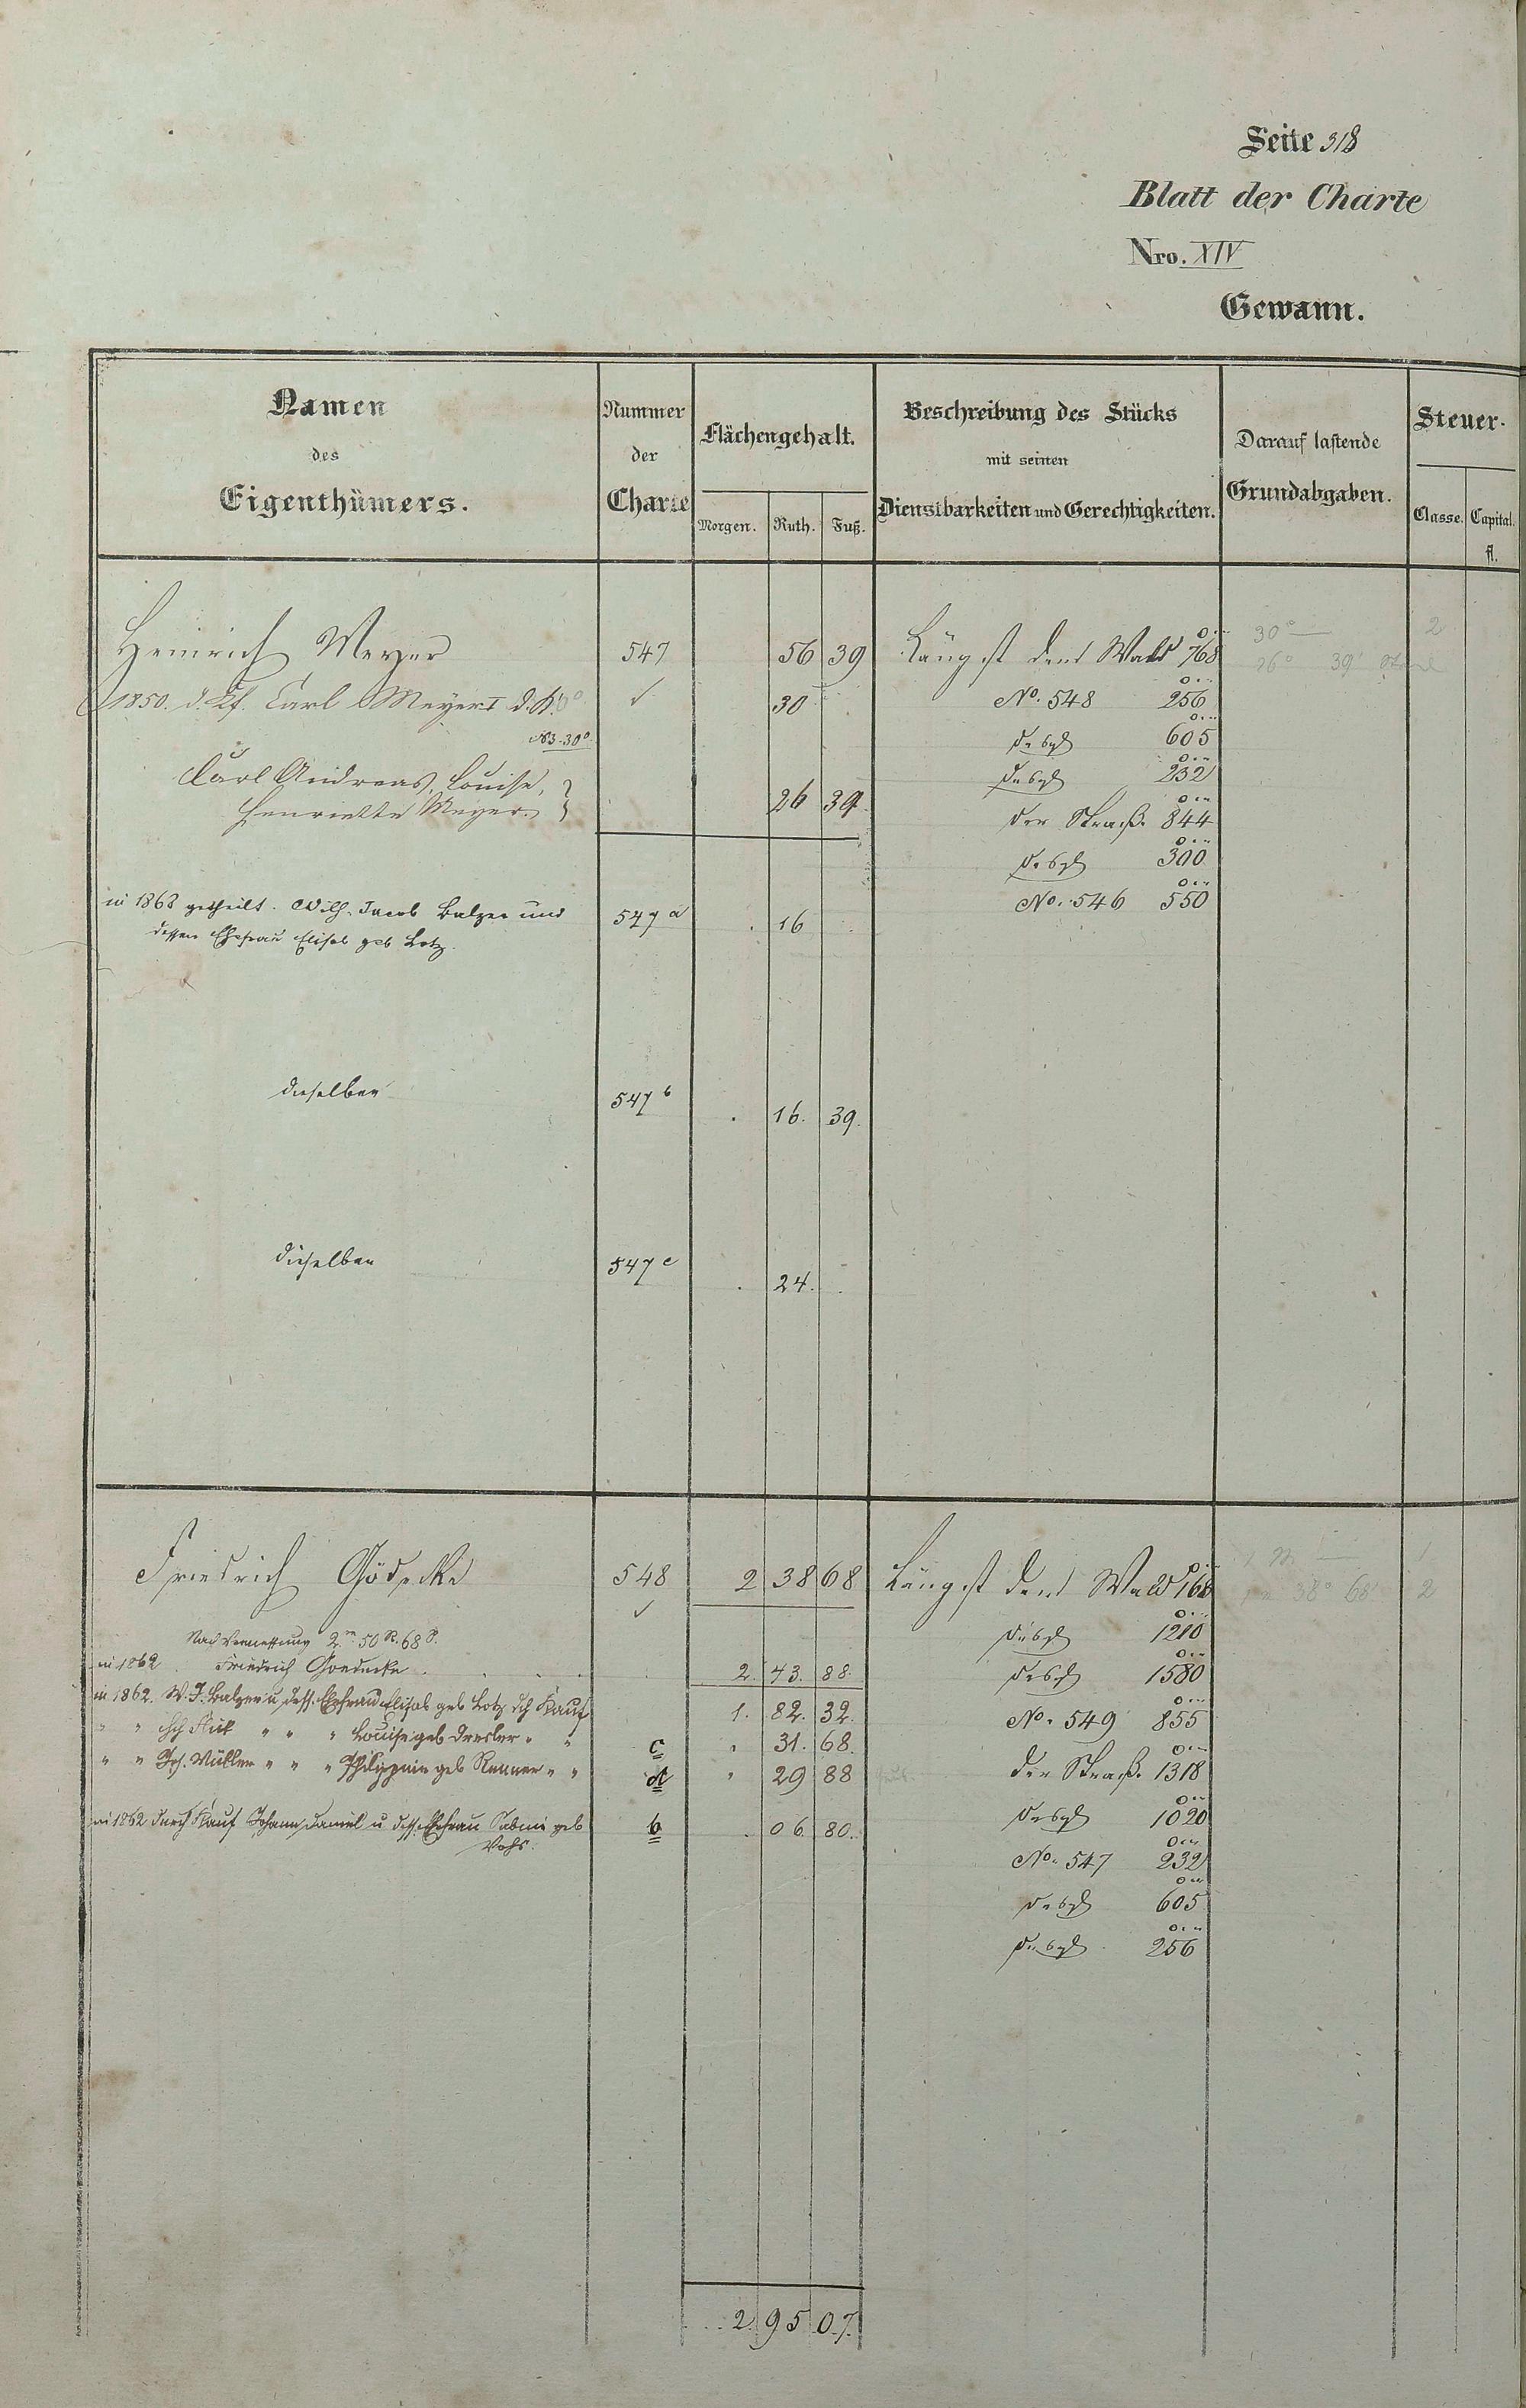 Seite 318
Blatt der Charte
Nro. XIV
Gewann.
Namen des Eigenthümers.
Nummer der Charte
Flächengehalt.
Morgen. Ruth. Fuß.
Beschreibung des Stücks mit seinen Dienstbarkeiten und Gerechtigkeiten.
Darauf lastende Grundabgaben.
Steuer-
Classe. Capital. fl.
Heinrich Meyer 547 56 39 Längst dem Wald 768
30° 2
26° 39'
1850. d. Kf. Carl Meyer I 30 No. 548 256
30° desgl 605
Carl Andreas, Louise, desgl 232
Henriette Meyer 26 39 der Straße 844
desgl 300
No. 546 550
in 1868 getheilt. Wilh. Jacob Balzer und 547 a 16
dessen Ehefrau Elisab geb Lotz.
dieselben 547 b 16. 39.
dieselben 547 c 24.
Friedrich Gödecke 548 2 38 68 Längst dem Wald 168
38° 68' 2
Nach Vermessung 2 m 50 R. 68 S. desgl 1210
in 1862 Friedrich Goedecke 2. 43. 88. desgl 1580
in 1862. W. J. Balzer u. dess. Ehefrau Elisab geb Lotz dch Kauf 1. 82. 32. No. 549 855
" " " " " Louise geb Dresler " " c " 31. 68.
" " Joh. Müller " " " Philippine geb Renner " " d " 29 88 der Straße 1318
in 1862 durch Kauf Johann Daniel u dess. Ehefrau Sabine geb b 06. 80. desgl 1020
Vohs.
No. 547 232
desgl 605
desgl 256
2 95 07.